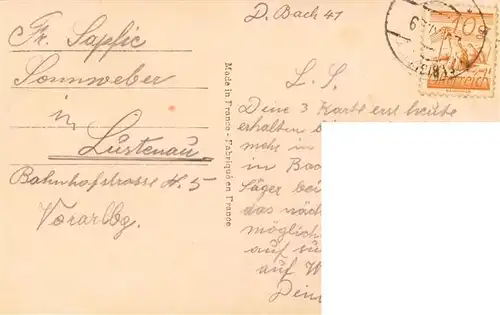 Fr. Sapfic
Sonnweber
in
Lustenau
Bahnhofstrasse N. 5
Vorarlbg.
Made in France - Fabriqué en France
D. Bach 41
L. S.
Deine 3 Karte erst heute
erhalten
mehr in
in Bac
Säger bei
das näch
möglich
auf
auf W
Dein
10